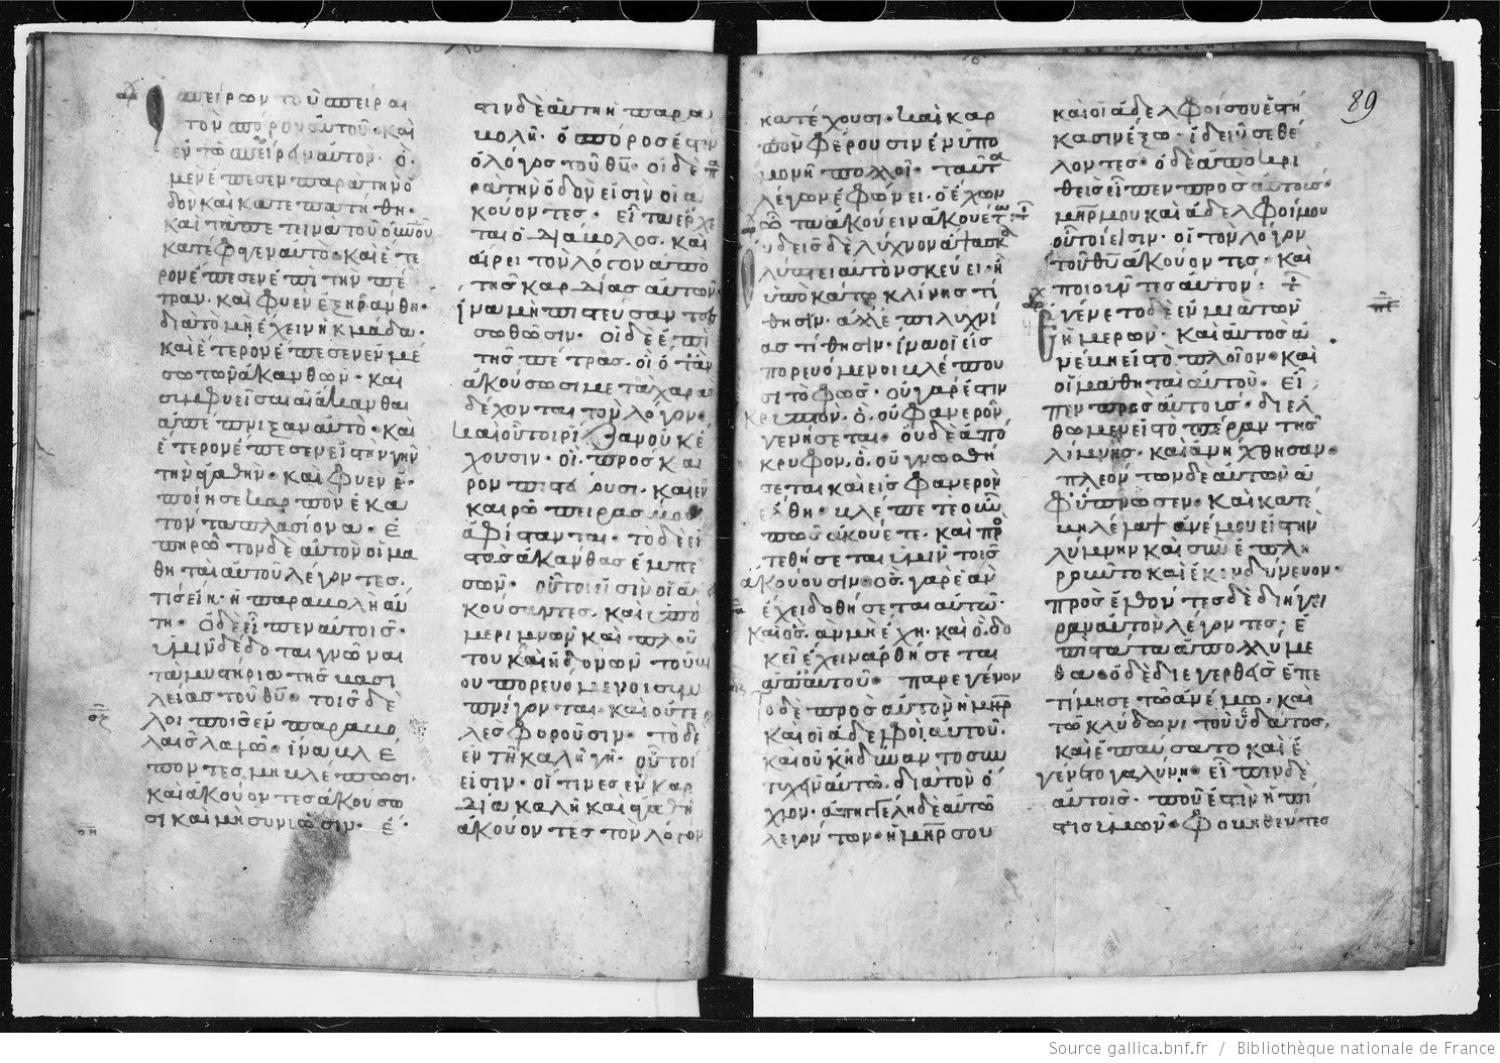 σπείρων τοῦ σπεῖραι
τὸν σπόρον αὐτοῦ· καὶ
ἐν τῶ σπείρειν αὐτόν· ὁ
μὲν ἔπεσεν παρὰ τὴν ὁ
δὸν καὶ κατεπατήθη·
καὶ τὰ πετεινὰ τοῦ οὐνοῦ
κατέφαγεν αὐτό· καὶ ἕτε
ρον ἔπεσεν ἐπὶ τὴν πέ
τραν· καὶ φυὲν ἐξηράνθη·
διὰ τὸ μὴ ἔχειν ἠκμάδα·
καὶ ἕτερον ἔπεσεν ἐν μέ
σω τῶν ἀκανθῶν· καὶ
συμφυεῖσαι αἱ ἄκανθαι
ἀπέπνιξαν αὐτό· καὶ
ἕτερον ἔπεσεν εἰς τὴν γῆν
τὴν ἀγαθήν· καὶ φυὲν ἐ
ποίησε καρπὸν ἑκα
τονταπλασίονα· ἐ
πηρώτουν δὲ αὐτὸν οἱ μα
θηταὶ αὐτοῦ λέγοντες·
τίς εἴη ἡ παραβολὴ αὕ
τη· ὁ δὲ εἶπεν αὐτοῖς·
ὑμῖν δέδοται γνῶναι
τὰ μυστήρια τῆς βασι
λείας τοῦ θυ· τοῖς δὲ
λοιποῖς ἐν παραβο
λαῖς λαλῶ· ἵνα βλέ
ποντες μὴ βλέπωσι·
καὶ ἀκούοντες ἀκούσω
σι καὶ μὴ συνιῶσιν· ἔ
στιν δὲ αὕτη ἡ παρα
βολή· ὁ σπόρος ἐστὶν
ὁ λόγος τοῦ θυ· οἱ δὲ πα
ρὰ τὴν ὁδὸν εἰσὶν οἱ ἀ
κούοντες· εἶτα ἔρχε
ται ὁ διάβολος· καὶ
αἴρει τὸν λόγον ἀπὸ
τῆς καρδίας αὐτῶν·
ἵνα μὴ πιστεύσαντες
σωθῶσιν· οἱ δὲ ἐπὶ
τῆς πέτρας· οἱ ὅταν
ἀκούσωσι μετὰ χαρᾶς
δέχονται τὸν λόγον·
καὶ οὗτοι ρίζαν οὐκ ἔ
χουσιν· οἳ πρὸς και
ρὸν πιστεύουσι· καὶ ἐν
καιρῶ πειρασμοῦ
ἀφίστανται· τὸ δὲ εἰς
τὰς ἀκάνθας ἐμπε
σὼν· οὗτοί εἰσιν οἱ ἀ
κούσαντες· καὶ ὑπὸ
μεριμνῶν καὶ πλού
του καὶ ἡδονῶν τοῦ βί
ου πορευόμενοι συμ
πνίγονται· καὶ οὐ τε
λεσφοροῦσιν· τὸ δὲ
ἐν τῆ καλῆ γῆ· οὗτοί
εἰσιν· οἵτινες ἐν καρ
δία καλῆ καὶ ἀγαθῆ
ἀκούοντες τὸν λόγον
κατέχουσι· καὶ καρ
ποφέρουσιν ἐν ὑπο
μονῆ πολλοὶ· ταῦτα
λέγων ἐφώνει· ὁ ἔχων
ὦτα ἀκούειν ἀκουέτω
οὐδεὶς δὲ λύχνον ἅψας κα
λύπτει αὐτὸν σκεύει· ἢ
ὑποκάτω κλίνης τί
θησιν· ἀλλ' ἐπὶ λυχνί
ας τίθησιν· ἵνα οἱ εἰσ
πορευόμενοι βλέπου
σι τὸ φῶς· οὐ γάρ ἐστιν
κρυπτὸν· ὃ οὐ φανερὸν
γενήσεται· οὐδὲ ἀπό
κρυφον, ὃ οὐ γνωσθή
σεται καὶ εἰς φανερὸν
ἔλθη· βλέπετε οὖν
πῶς ἀκούετε· καὶ προσ
τεθήσεται ὑμῖν τοῖς
ἀκούουσιν· ὃς γὰρ ἐὰν
ἔχει δοθήσεται αὐτῶ·
καὶ ὃς ἂν μὴ ἔχη· καὶ ὃ δο
κεῖ ἔχειν ἀρθήσεται
ἀπ' αὐτοῦ· παρεγένον
το δὲ πρὸς αὐτὸν ἡ μηρ
καὶ οἱ ἀδελφοὶ αὐτοῦ·
καὶ οὐκ ἠδύναντο συν
τυχεῖν αὐτῶ διὰ τὸν ὄ
χλον· ἀπηγγέλη δὲ αὐτῶ
λεγόντων· ἡ μηρ σου
καὶ οἱ ἀδελφοί σου ἑστή
κασιν ἔξω· ἰδεῖν σε θέ
λοντες· ὁ δὲ ἀποκρι
θεὶς εἶπεν πρὸς αὐτούς·
μηρ μου καὶ ἀδελφοί μου
οὗτοί εἰσιν· οἱ τὸν λόγον
τοῦ θυ ἀκούοντες· καὶ
ποιοῦντες αὐτόν·
Ἐγένετο δὲ ἐν μιᾶ τῶν
ἡμερῶν· καὶ αὐτὸς ἀ
νέβη εἰς τὸ πλοῖον· καὶ
οἱ μαθηταὶ αὐτοῦ· εἶ
πεν πρὸς αὐτούς· διέλ
θωμεν εἰς τὸ πέραν τῆς
λίμνης· καὶ ἀνήχθησαν·
πλεόντων δὲ αὐτῶν ἀ
φύπνωσεν· καὶ κατέ
βη λέλαψ ἀνέμου εἰς τὴν
λίμνην καὶ συνεπλη
ροῦντο καὶ ἐκινδύνευον·
προσελθόντες δὲ διήγει
ραν αὐτὸν λέγοντες· ἐ
πιστάτα ἀπολλύμε
θα· ὁ δὲ διεγερθεὶς ἐπε
τίμησε τῶ ἀνέμω· καὶ
τῶ κλύδωνι τοῦ ὕδατος.
καὶ ἐπαύσατο καὶ ἐ
γένετο γαλήνη· εἶπεν δὲ
αὐτοῖς· ποῦ ἐστιν ἡ πί
στις ὑμῶν· φοβηθέντες
89
Source gallica.bnf.fr / Bibliothèque nationale de France